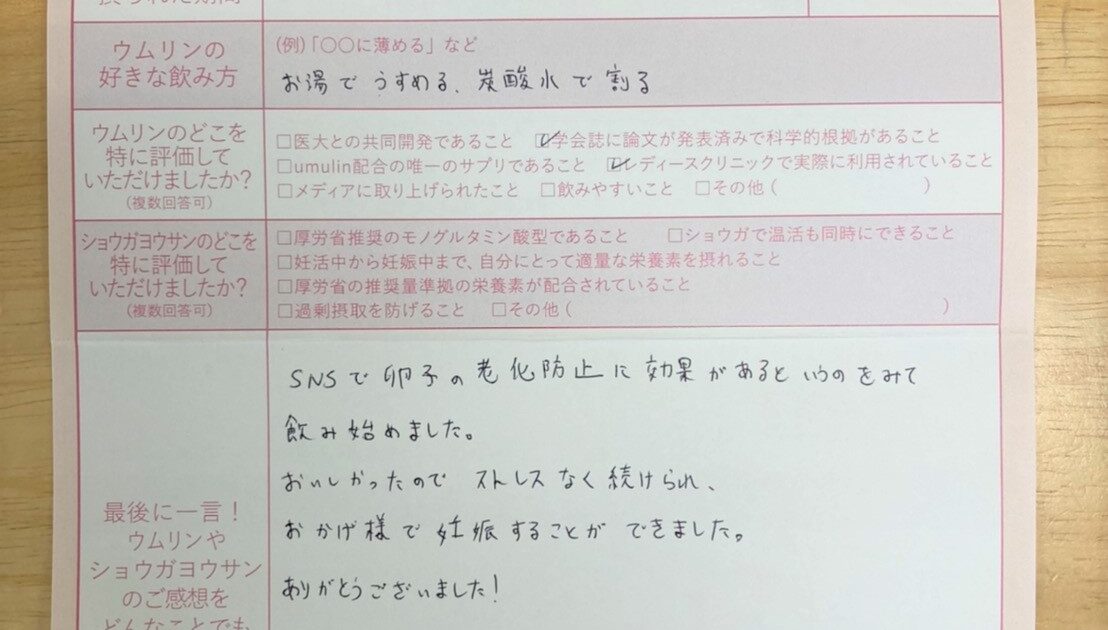 ウムリンの
好きな飲み方
(例)「〇〇に薄める」など
お湯で うすめる、炭酸水で割る
ウムリンのどこを
特に評価して
いただけましたか?
(複数回答可)
□医大との共同開発であること ☑学会誌に論文が発表済みで科学的根拠があること
□umulin配合の唯一のサプリであること ☑レディースクリニックで実際に利用されていること
□メディアに取り上げられたこと □飲みやすいこと □その他( )
ショウガヨウサンのどこを
特に評価して
いただけましたか?
(複数回答可)
□厚労省推奨のモノグルタミン酸型であること □ショウガで温活も同時にできること
□妊活中から妊娠中まで、自分にとって適量な栄養素を摂れること
□厚労省の推奨量準拠の栄養素が配合されていること
□過剰摂取を防げること □その他( )
最後に一言!
ウムリンや
ショウガヨウサン
のご感想を
どんなことでも
SNSで卵子の老化防止に効果があるというのをみて
飲み始めました。
おいしかったので ストレスなく続けられ、
おかげ様で妊娠することが できました。
ありがとうございました!